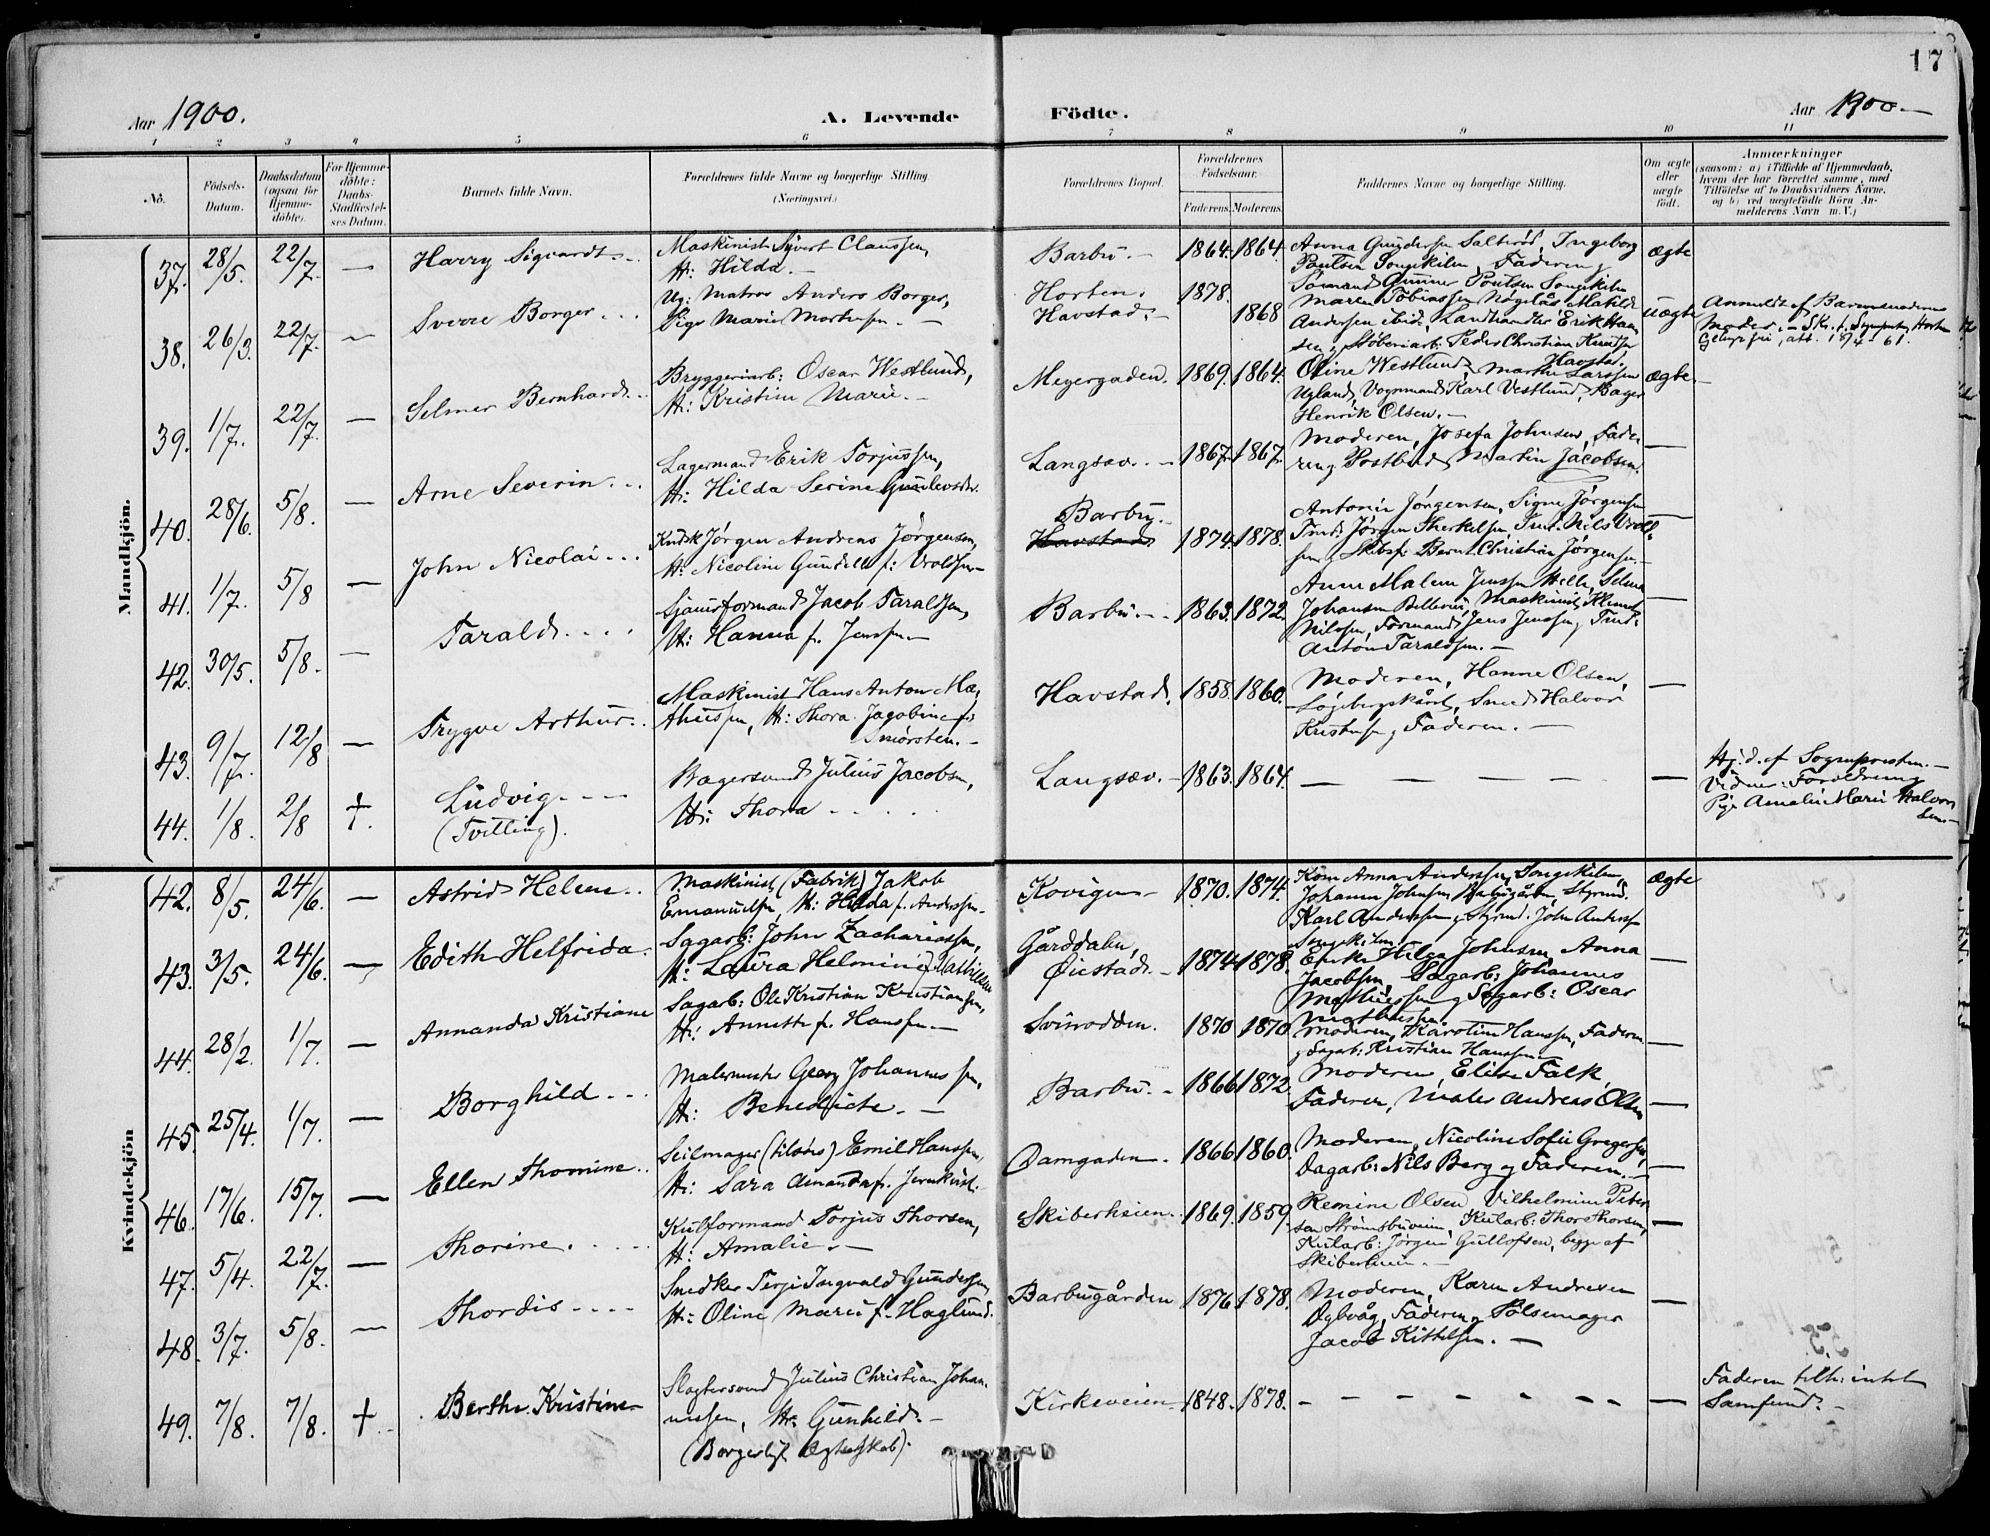 17
Aar 1900.
A. Levende
Födte.
Aar 1900.
1 2 3 4 5 6 7 8 9 10 11
No.
Födsels-
Datum.
Daabsdatum
(ogsaa for
Hjemme-
döbte).
For Hjemme-
döbte:
Daabs-
Stadfæstel-
ses Datum.
Barnets fulde Navn.
Forældrenes fulde Navne og borgerlige Stilling
(Næringsvei.)
Forældrenes Bopæl.
Forældrenes
Födselsaar.
Faderens. Moderens.
Faddernes Navne og borgerlige Stilling.
Om ægte
eller
uægte
födt.
Anmærkninger
(saasom: a) i Tilfælde af Hjemmedaab,
hvem der har forrettet samme, med
Tilföielse af to Daabsvidners Navne,
og b) ved uægtefödte Börn An-
melderens Navn m. V.)
Mandkjöm.
37. 28/5. 22/7. — Harry Sigvardt
Maskinist Syvert Claussen,
H: Hilda. —
Barbu. — 1864. 1864.
Anna Gundersen Salterød, Ingeborg
Poulsen Songekilen, Faderen
Sømand Gunner Poulsen Songekilen
ægte
38. 26/3. 22/7. — Sverre Borger
Ug: Matros Anders Borger,
Pige Marie Mortensen. —
Horten.
Havstad. 1878. 1868
Maren Tobiassen Møgelås Matilde
Andersen ibid., Landhandler Erik Han
sen, Støberiarb: Peder Christian Knudsen
Havstad.
uægte
Anmeldt af Barnemoderens
Moder.
39. 1/7. 22/7. — Selmer Bernhard
Bryggeriarb: Oscar Westlund,
H: Kristine Marie. —
Meyergaden. 1869. 1864.
Oline Westlund, Marthe Larssen
Ugland, Vognmand Karl Vestlund, Bager
Henrik Olsen. —
ægte
40. 28/6. 5/8. — Arne Severin
Lagermand Erik Torjussen,
H: Hilda Serine Gunlevsdr.
Langsæv. — 1867. 1867.
Moderen, Josefa Johnsen, Fade-
ren og Postbud Martin Jacobsen.
—
41. 1/7. 5/8 — John Nicolai
Kudsk Jørgen Andreas Jørgensen,
H: Nicoline Gundelle f: Vroldsen —
Barbu.
Havstad 1874. 1878.
Antonie Jørgensen, Signe Jørgensen
Tmd: Jørgen Therkelsen, Tmd. Nils Vrold-
sen, Skibsf. Bernt Christian Jørgensen. —
42. 30/5. 5/8. — Tarald
Sjauformand Jacob Taraldsen,
H: Hanna f. Jensen —
Barbu. — 1863. 1872.
Anne Malene Jensen Hille, Selma
Johansen Bellevue, Maskinist Klemet
Nilsen, Formand Jens Jensen, Tmd:
Anton Taraldsen. —
43. 9/7. 12/8 — Trygve Arthur
Maskinist Hans Anton Ma-
thiesen, H: Thora Jagobine f:
Smørsten. —
Havstad. 1858. 1860.
Moderen, Hanne Olsen,
Smed Halvor
Kristensen, Faderen. —
—
44. 1/8. 2/8 †. Ludvig
(Tvilling).
Bagersvend Julius Jacobsen,
H: Thora
Langsæv. — 1863. 1864.
— — — —
Hj. d. af Sognepresten. —
Vidner: Forældrene
Pige Amalie Marie Halvor
sen —
Kvindekjön
42. 8/5. 24/6. — Astrid Helene
Maskinist (Fabrik) Jakob
Emanuelsen, H: Hilda f. Anderssen.
Kovigen — 1870. 1874.
Kone Anna Anderssen, Songekilen,
Johanne Johnsen, Barbugården, Styrmd.
Karl Anderssen, Styrmd. John Anderssen
Songekilen
ægte
43. 3/5. 24/6. — Edith Helfrida
Sagarb: John Zachariassen,
H: Laura Helmine f. Mathiesen
Gårddalen,
Øiestad. — 1874 1878.
Enke Helga Johnsen, Anna
Jacobsen, Sagarb: Johannes
Mathiessen, Sagarb: Oscar
Mathiesen.
—
44. 28/2. 1/7. — Annanda Kristiane
Sagarb: Ole Kristian Kristiansen,
H: Annette f. Hansen —
Svinrodden. 1870 1870
Moderen, Karoline Hanssen, Faderen
og Sagarb: Kristian Hanssen —
45. 25/4. 1/7. — Borghild
Malermester Georg Johannessen,
H: Benedicte. —
Barbu. — 1866 1872
Moderen, Elise Falk,
Faderen, Maler Andreas Olsen
—
46. 17/6. 15/7. — Ellen Thomine
Seilmager (tilsøs) Emil Hanssen,
H: Sara Amanda f. Jernkvist.
Damgaden. 1866 1860.
Moderen, Nicoline Sofie Gregersen,
Dagarb: Nils Berg og Faderen. —
47. 5/4. 22/7. — Thorine
Kulformand Torjus Thorsen,
H: Amalie. —
Skiberheien. 1869. 1859.
Remine Olsen, Vilhelmine Peter
sen Strømsbuveien, Kularb: Thor Thorsen,
Kularb: Jørgen Gullofsen, begge af
Skiberheien. —
48. 3/7. 5/8. — Thordis
Snedker Terje Ingvald Gundersen
H: Oline Marie f. Haglund.
Barbugården 1876. 1878.
Moderen, Karen Andresen
Dybvåg, Faderen, Pølsemager
Jacob Kittelsen. —
49. 7/8. 7/8. † Berthe Kristine
Slagtersvend Julius Christian Johan-
nessen, H: Gunhild. —
(Borgerligt Ægteskab).
Kirkeveien 1848. 1878.
— — — — — —
Faderen tilh: intet
Samfund. —